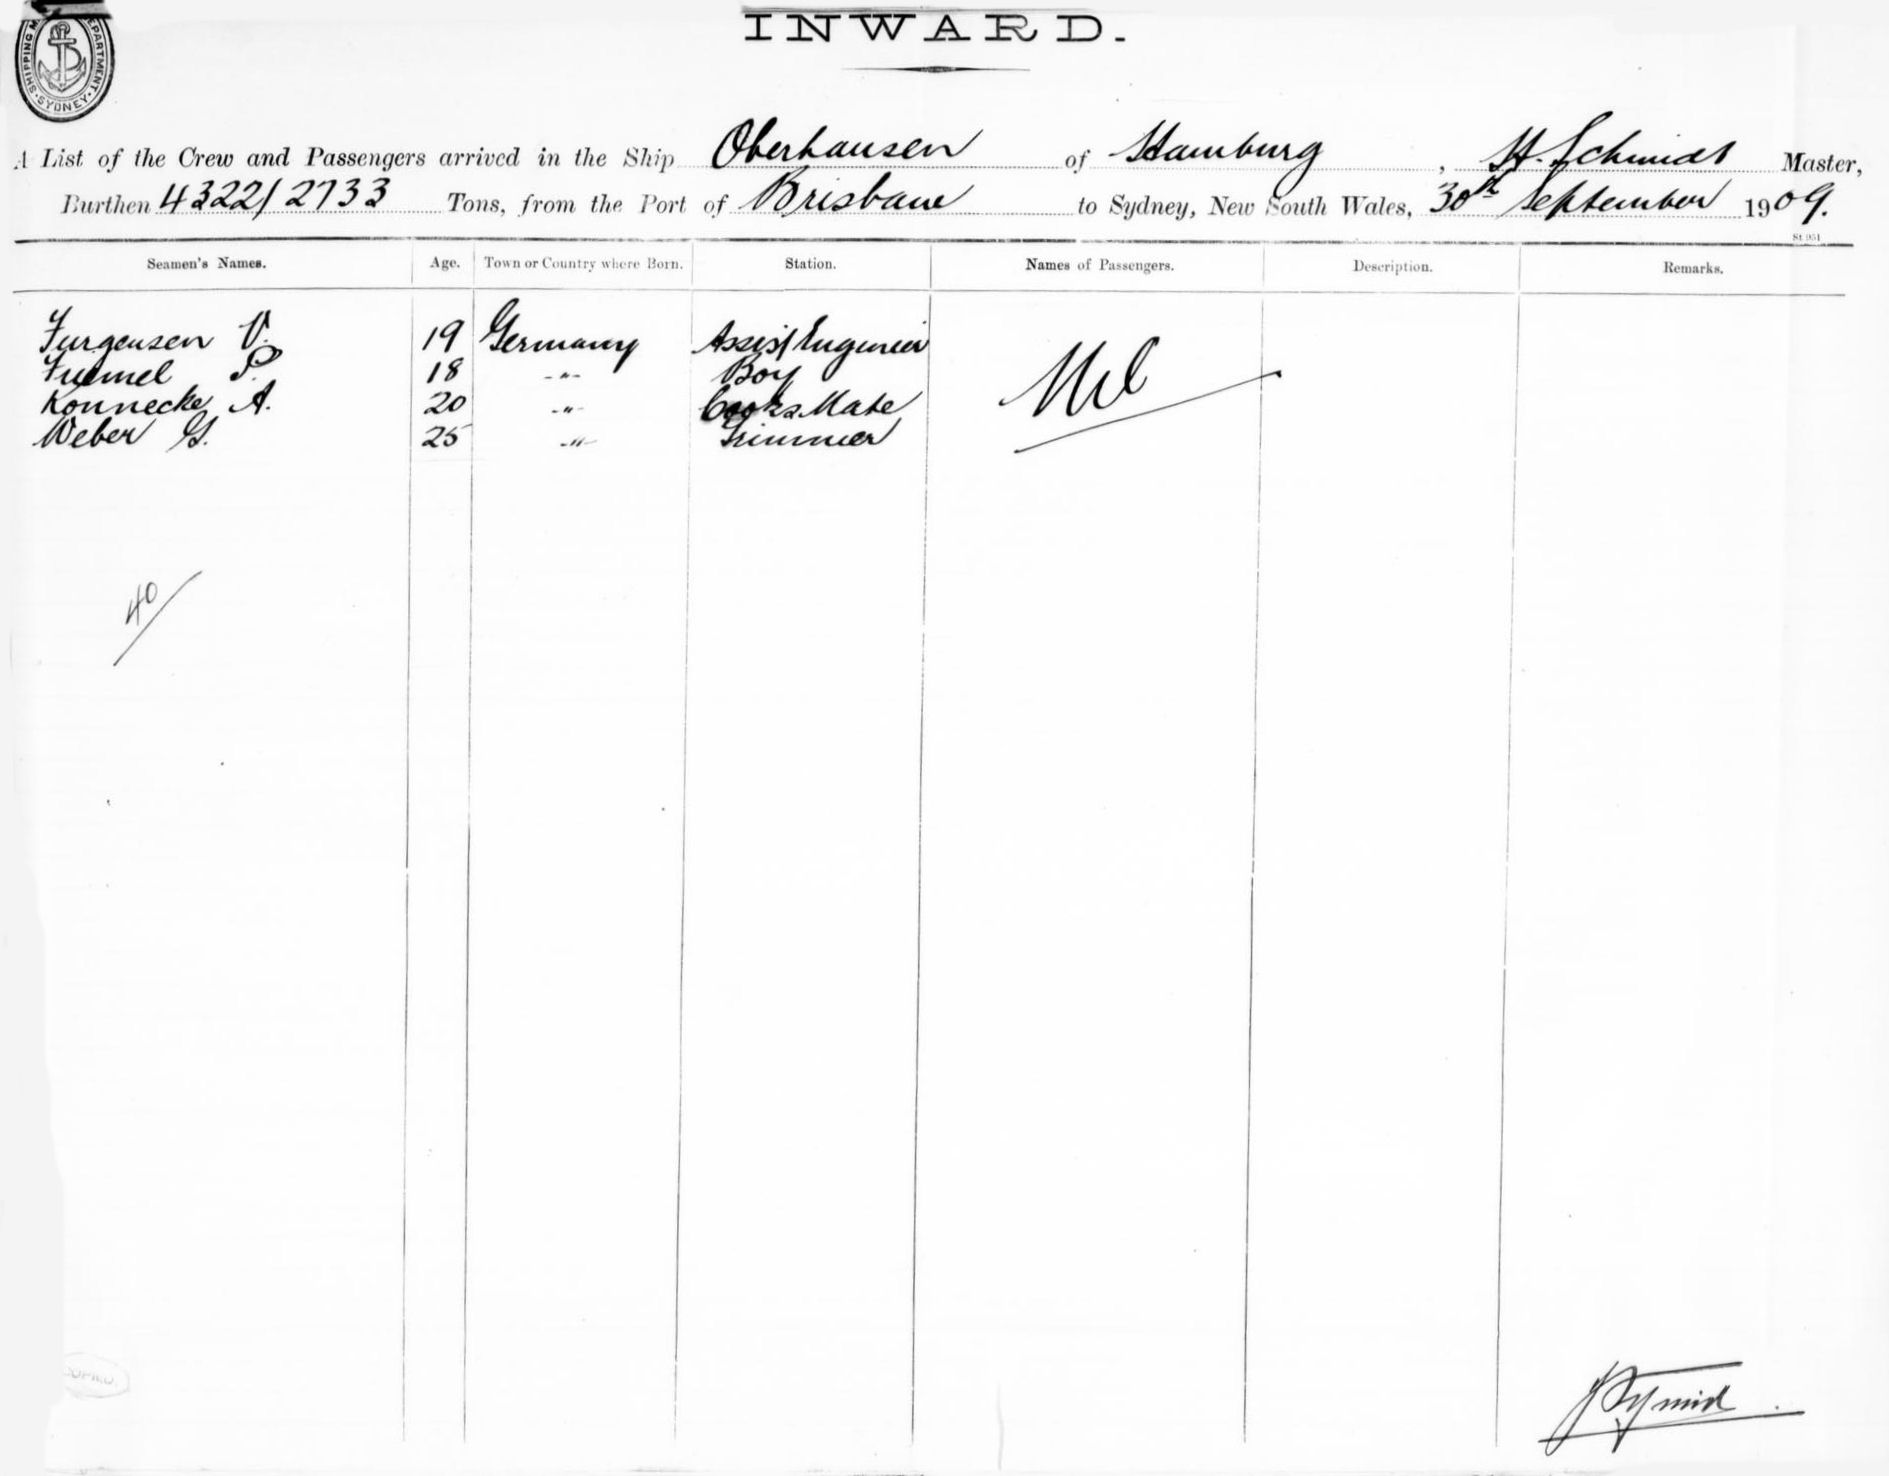 SHIPPING M DEPARTMENT SYDNEY
INWARD.
A List of the Crew and Passengers arrived in the Ship Oberhausen of Hamburg, H. Schmidt Master,
Burthen 4322/2733 Tons, from the Port of Brisbane to Sydney, New South Wales, 30th September 1909.
St 951
Seamen's Names. Age. Town or Country where Born. Station. Names of Passengers. Description. Remarks.
Jurgensen V. 19 Germany Assist Engineer Nil
P. 18 -"- Boy
Konnecke A. 20 -"- Cooks Mate
Weber G. 25 -"- Trimmer
40